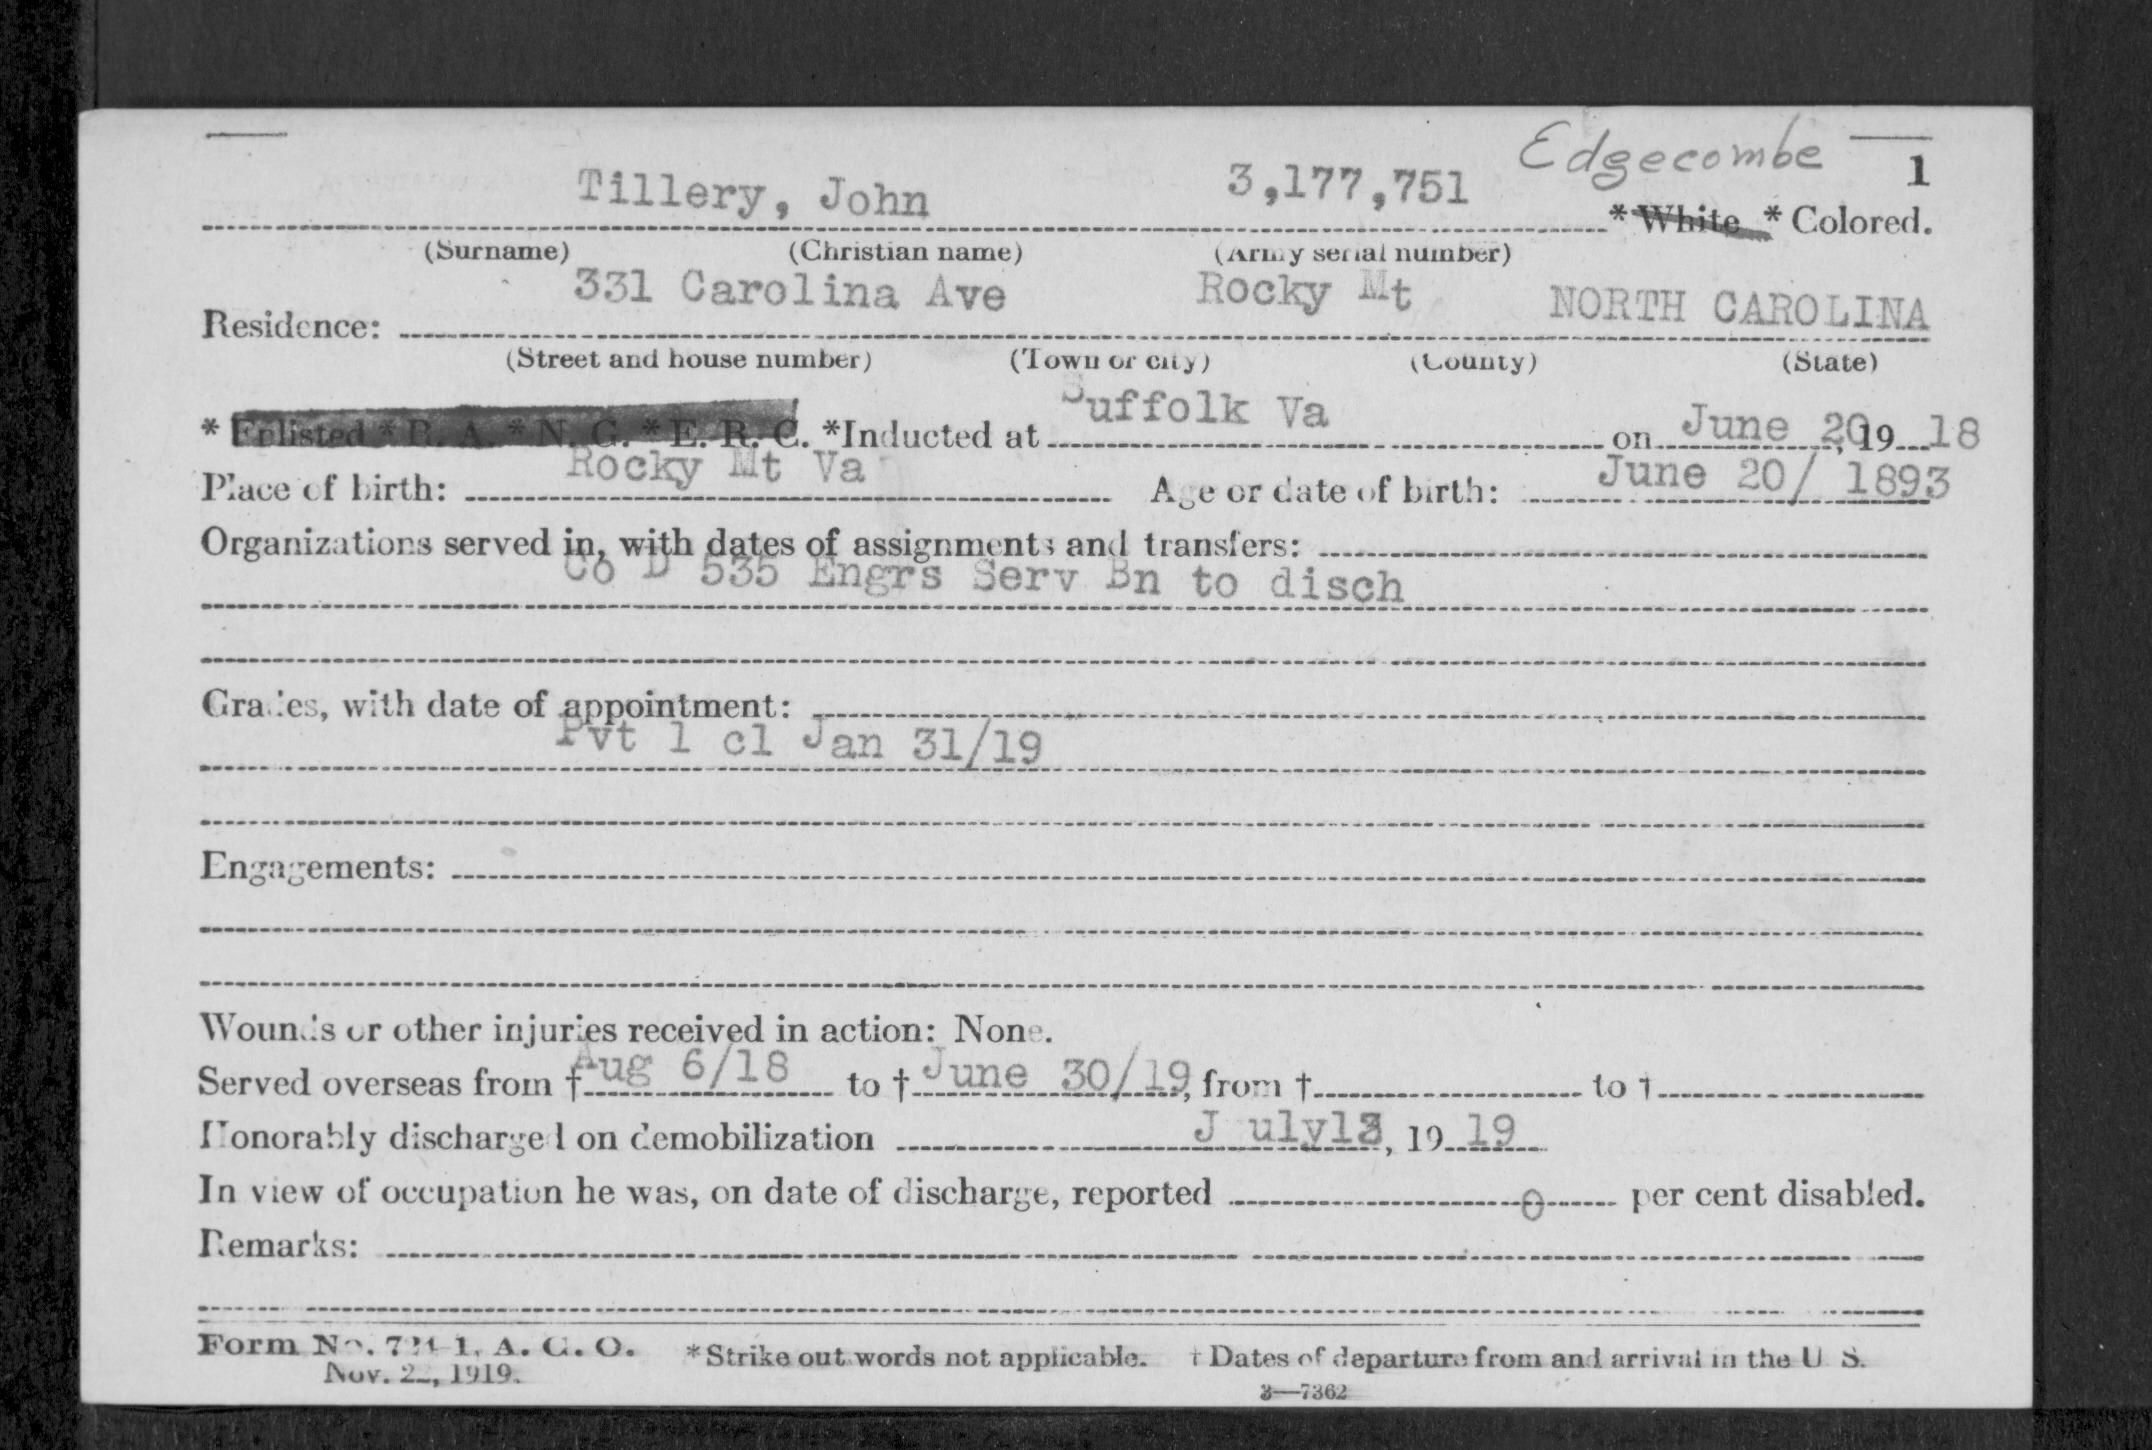 Edgecombe
1
Tillery, John 3,177,751 * White * Colored.
(Surname) (Christian name) (Army serial number)
331 Carolina Ave Rocky Mt NORTH CAROLINA
Residence:
(Street and house number) (Town or city) (County) (State)
* Enlisted * R. A. * N. G. * E. R. C. *Inducted at Suffolk Va on June 20, 19 18
Place of birth: Rocky Mt Va Age or date of birth: June 20/ 1893
Organizations served in, with dates of assignments and transfers:
Co D 535 Engrs Serv Bn to disch
Grades, with date of appointment:
Pvt 1 cl Jan 31/19
Engagements:
Wounds or other injuries received in action: None.
Served overseas from † Aug 6/18 to † June 30/19, from † to †
Honorably discharged on demobilization July , 19 19
In view of occupation he was, on date of discharge, reported 0 per cent disabled.
Remarks:
Form No. 724-1, A. G. O. * Strike out words not applicable. † Dates of departure from and arrival in the U S.
Nov. 22, 1919.
3—7362